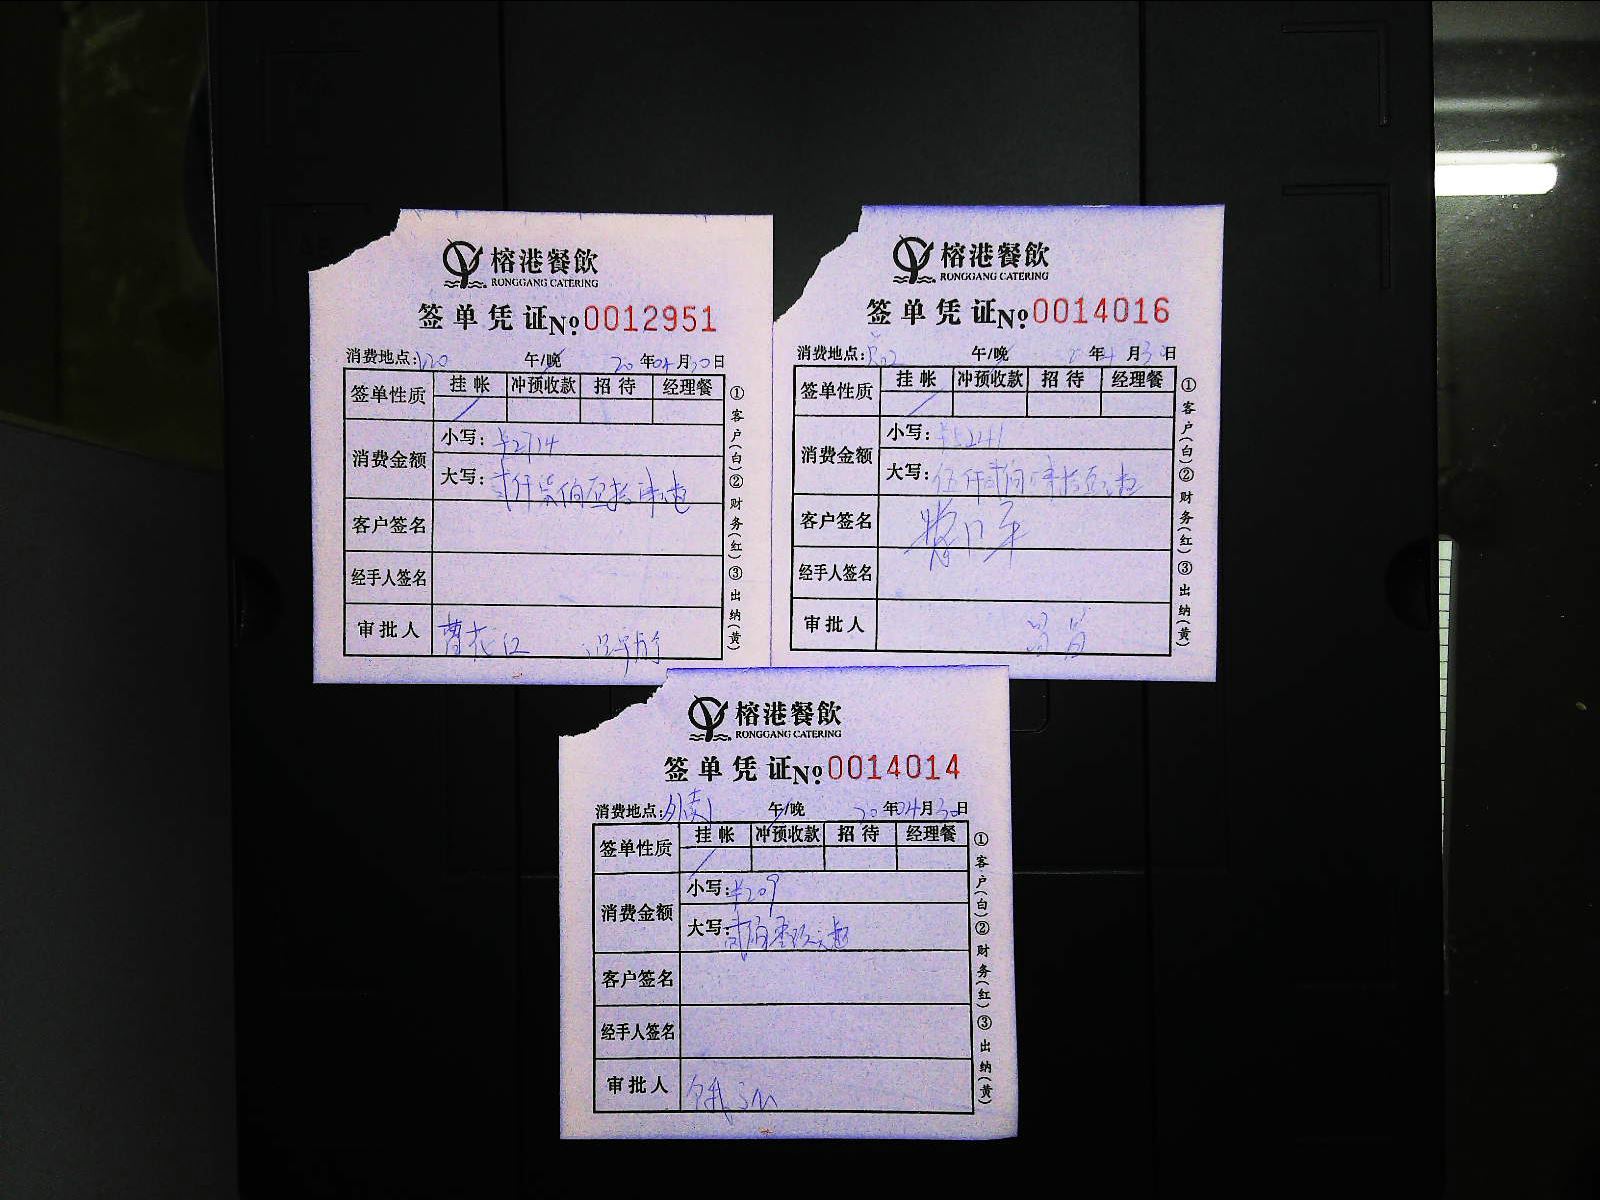 榕港餐飲
RONGGANG CATERING
签单凭证 No 0012951
消费地点: V20 午/晚 20年04月30日
签单性质 挂帐 冲预收款 招待 经理餐
消费金额 小写: ¥2714
大写: 贰仟柒佰壹拾肆元
客户签名
经手人签名
审批人
①客户(白)②财务(红)③出纳(黄)
榕港餐飲
RONGGANG CATERING
签单凭证 No 0014016
消费地点: 午/晚 年4月30日
签单性质 挂帐 冲预收款 招待 经理餐
消费金额 小写: ¥5241
大写: 伍仟贰佰肆拾壹元
客户签名
经手人签名
审批人
①客户(白)②财务(红)③出纳(黄)
榕港餐飲
RONGGANG CATERING
签单凭证 No 0014014
消费地点: 午/晚 20年04月30日
签单性质 挂帐 冲预收款 招待 经理餐
消费金额 小写: ¥209
大写: 贰佰零玖元
客户签名
经手人签名
审批人
①客户(白)②财务(红)③出纳(黄)